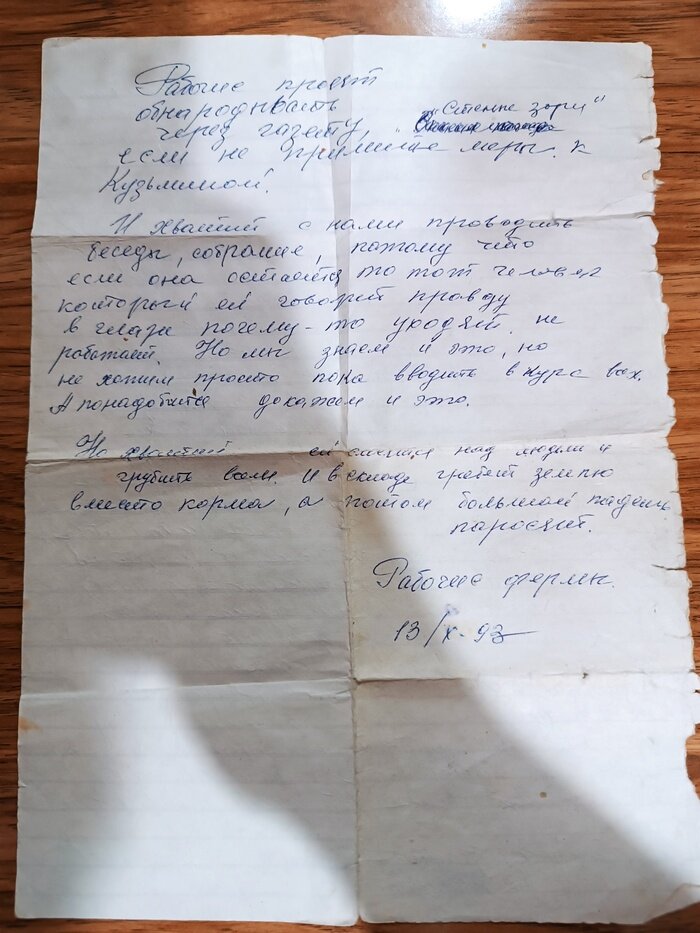 Рабочие просят
обнародывать "Степные зори"
через газету,
если не примите меры к
Кузьминой.
И хватит с нами проводить
беседы, собрание, потому что
если она остаётся, то тот человек
который ей говорит правду
в глаза почему-то уродяй, не
работает. Но мы знаем и это, но
не хотим просто пока вводить в курс вах.
А понадобится докажем и это.
Но хватит ей над людьми и
грубить всем. И в складе гребёт землю
вместо корма, а потом большой падёнь
паросят.
Рабочие фермы.
13/X-93